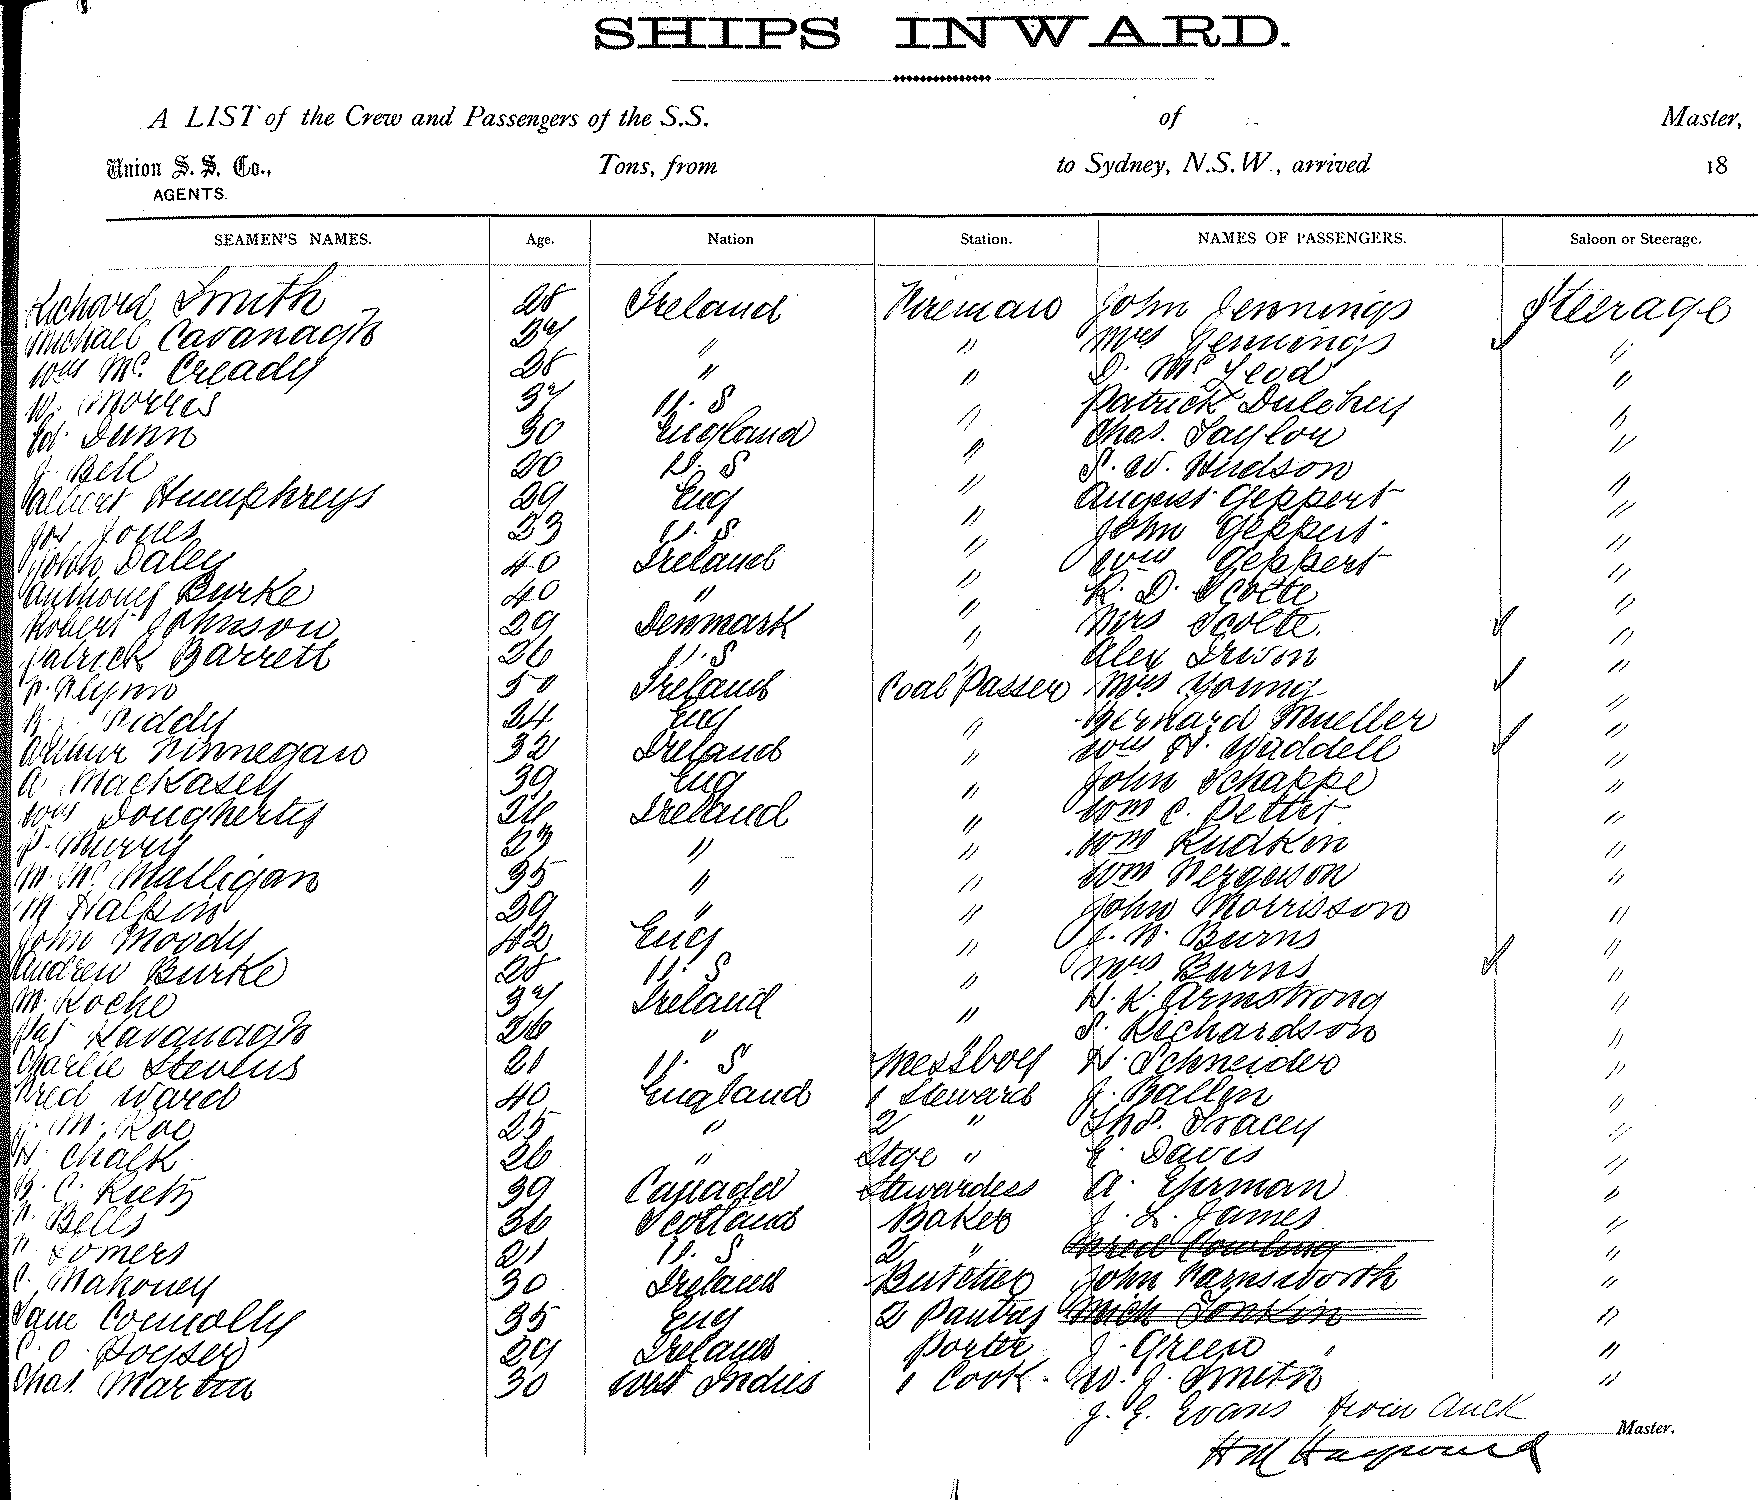 SHIPS INWARD.
A LIST of the Crew and Passengers of the S.S. of Master,
Union S. S. Co., Tons, from to Sydney, N.S.W., arrived 18
AGENTS.
SEAMEN'S NAMES. Age. Nation Station. NAMES OF PASSENGERS. Saloon or Steerage.
Richard Smith 28 Ireland Fireman John Jennings Steerage
Michael Cavanagh 34 " " Mrs Jennings "
Wm Mc. Cready 28 " " D. McLeod "
W. Morris 37 U. S " Patrick Dulehey "
Ed. Dunn 30 England " Chas. Taylor "
J. Bell 20 U. S " S. W. Hudson "
Albert Humphreys 29 Eng " August Geppert "
Jos Jones 23 U. S " John Geppert "
John Daley 40 Ireland " Wm Geppert "
Anthony Burke 40 " " R. D. Scotte "
Robert Johnson 29 Denmark " Mrs Scotte. "
Patrick Barrett 26 U. S " Alex Irwin "
P. Flynn 50 Ireland Coal Passer Mrs Young "
Fiddy 24 Eng " Bernard Mueller "
Arthur Finnegan 32 Ireland " Wm H. Waddell "
A MacKasey 39 Eng " John Schappe "
Wm Dougherty Ireland " Wm C. Pettit "
P. Murry 23 " " Wm Rudkin "
M. Mc Mulligan 35 " " Wm Ferguson "
M Halpin 39 " " John Morrisson "
John Moody 42 Eng " J. W. Burns "
Andrew Burke 28 U. S " Mrs Burns "
M. Roche 37 Ireland " H. K. Armstrong "
Pat Kavanagh 26 " S. Richardson "
Charlie Stevens 21 U. S Messboy H. Schneider "
Fred Ward 40 England 1 Steward J. Ballin "
J. M. Roe 25 " 2 " Thos. Tracey "
H. Chalk 26 " Stge " E. Davis "
B. C. Rietz 39 Canada Stewardess A. Ehrman "
F. Bells 36 Scotland Baker J. L. James "
F. Somers 21 U. S 2 " Fred Cowling "
C. Mahoney 30 Ireland Butcher John Farnsworth "
Jane Connolly 35 Eng 2 Pantry Mich Tonkin "
C. O. Poyser 29 Ireland Porter J. Green "
Chas. Martin 30 West Indies 1 Cook. W. J. Smith "
J. E. Evans from Auck
Master.
H M Hayward